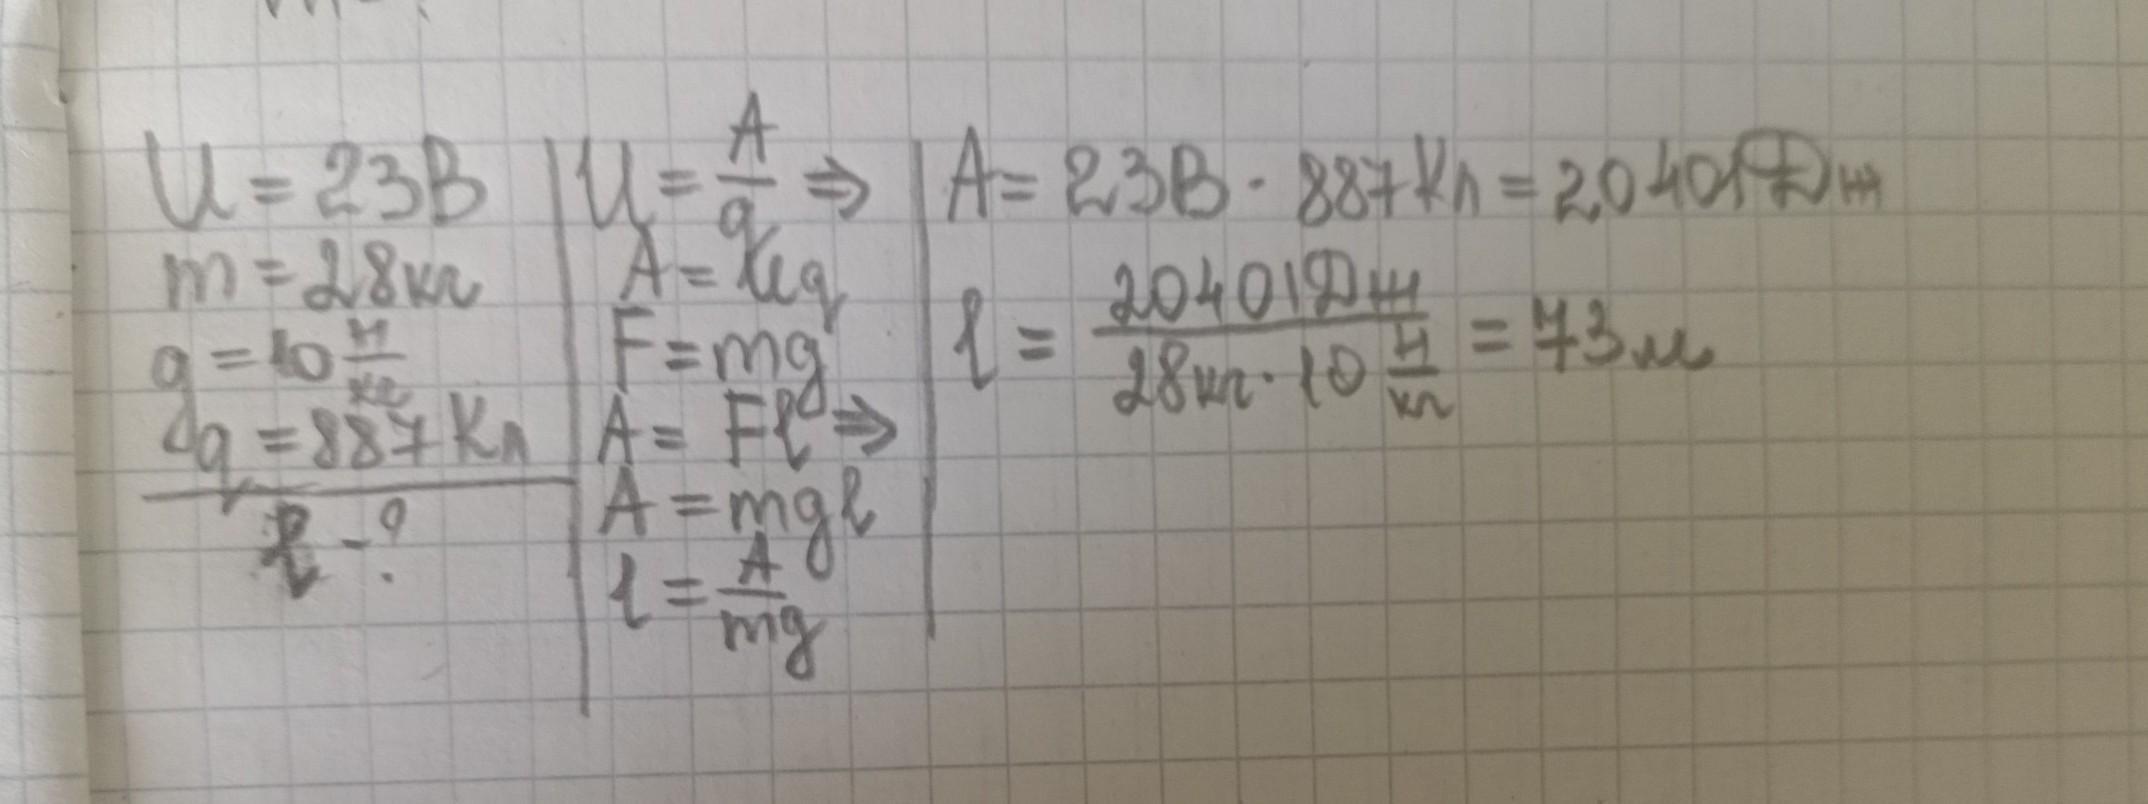 U = 23В
m = 28кг
g = 10 Н/кг
q = 887 Кл
l - ?
U = A/q ⇒
A = Uq
F = mg
A = Fl ⇒
A = mgl
l = A/mg
A = 23В · 887 Кл = 20401Дж
l = 20401Дж / 28кг · 10 Н/кг = 73м